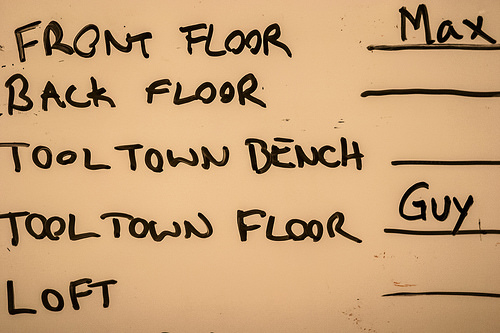 FRONT FLOOR Max
BACK FLOOR
TOOL TOWN BENCH
TOOL TOWN FLOOR Guy
LOFT